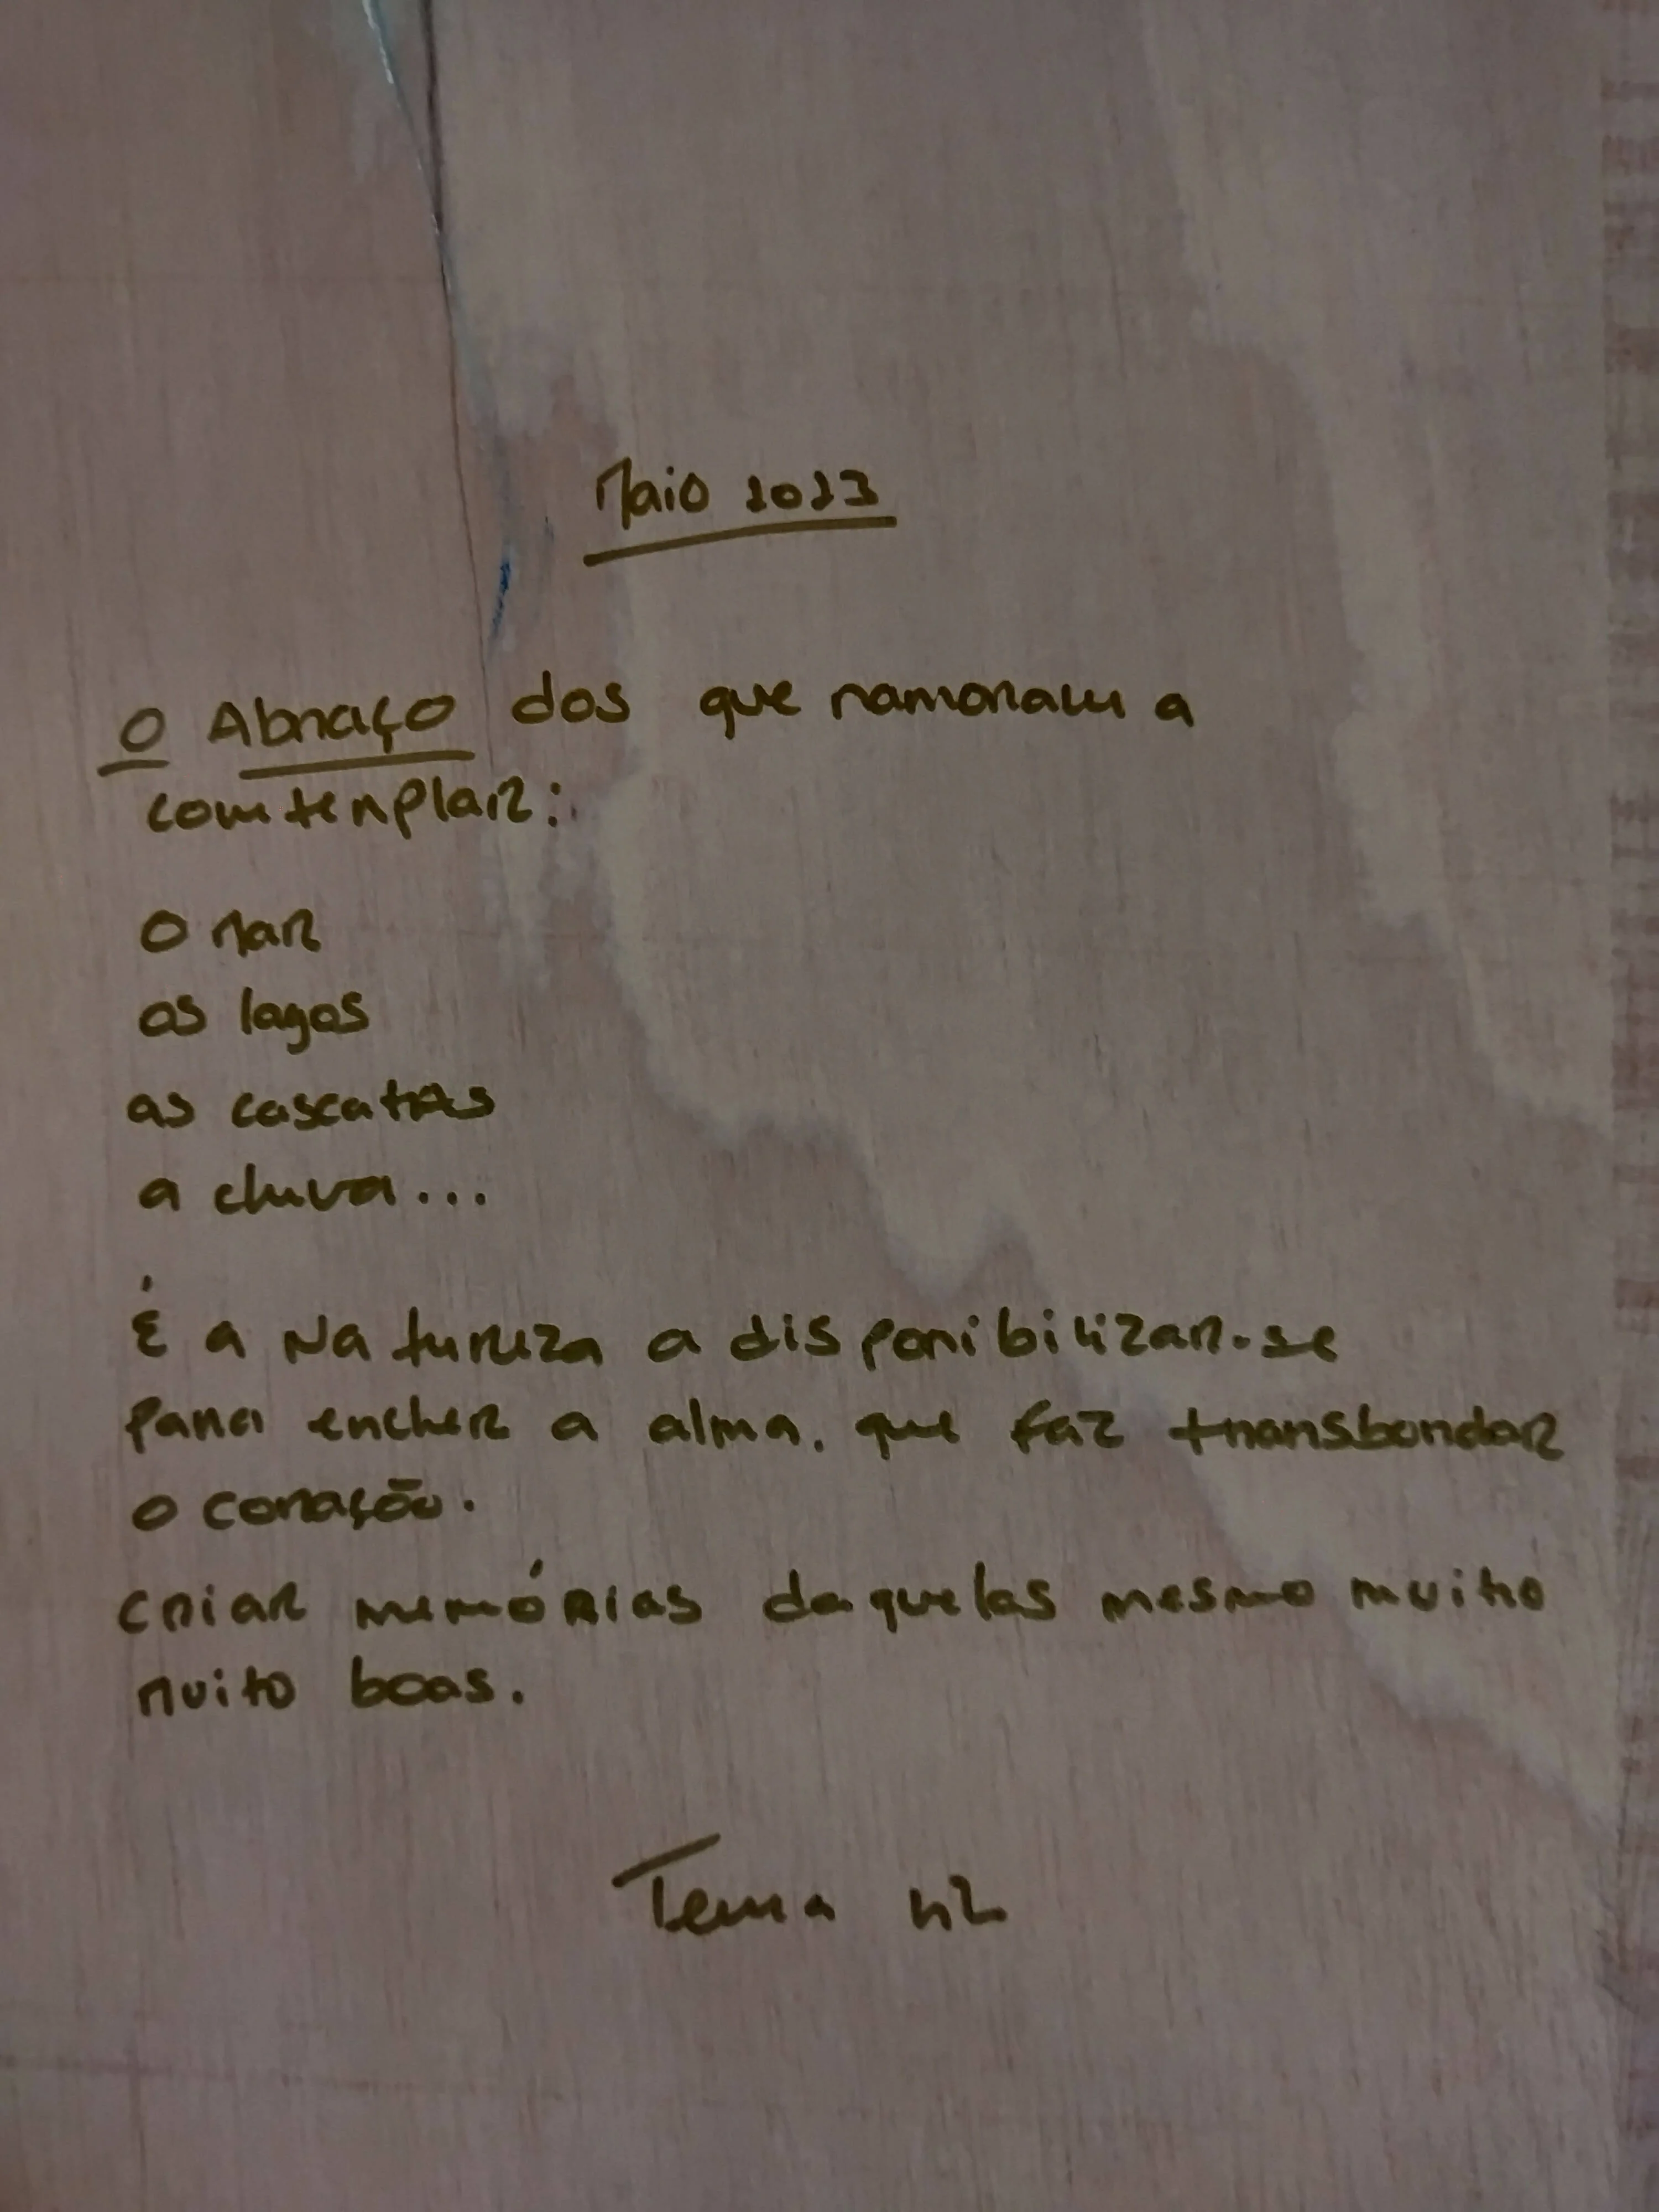 Maio 2023
O Abraço dos que namoram a
comtemplar:
O mar
os lagos
as cascatas
a chuva...
É a Natureza a disponibilizar-se
para encher a alma. que faz transbordar
o coração.
criar memórias daquelas mesmo muito
muito boas.
Tema 42